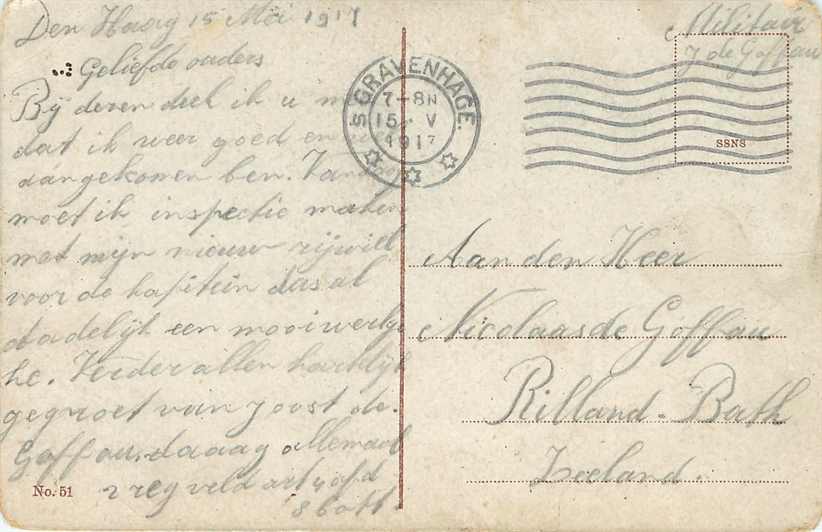 Den Haag 15 Mei 1917
Geliefde ouders
Bij deren deel ik u
dat ik weer goed en
aangekomen ben. Vandaag
moet ik inspectie maken
met mijn nieuw rijwiel
voor de kapitein das al
dadelijk een mooi werkje
he. Verder allen hartelijk
gegroet van Joost de.
Goffau. daaag allemaal
2 reg veld art 4 afd
8 batt.
No. 51
S GRAVENHAGE.
7-8N
15 V
1917
Militair
J de Goffau
SSNS
Aan den Heer
Nicolaas de Goffau
Rilland-Bath
Zeeland.